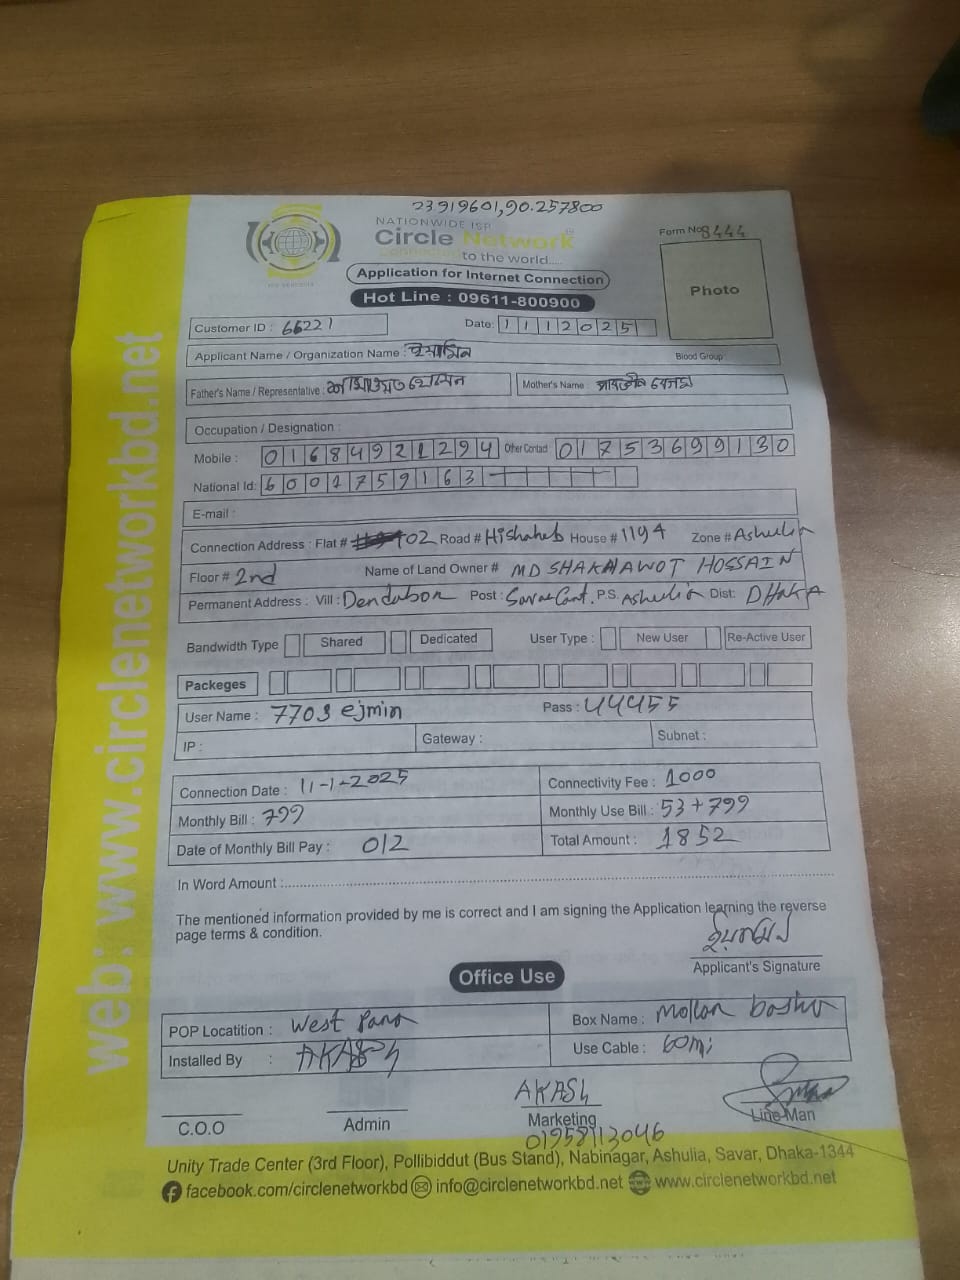 23919601,90.257800
NATIONWIDE ISP
Circle Network
Connected to the world.....
Form No 8444
Application for Internet Connection
Hot Line : 09611-800900
Photo
Customer ID : 66221
Date: 1 1 1 2 0 2 5
Applicant Name / Organization Name : ইয়াসিন
Blood Group
Father's Name / Representative : হোসেন
Mother's Name : বেগম
Occupation / Designation :
Mobile : 01684921294 Other Contact 01753699130
National Id: 6001759163
E-mail :
Connection Address : Flat # 102 Road # Hishaheb House # 1194 Zone # Ashulia
Floor # 2nd Name of Land Owner # MD SHAKHAWOT HOSSAIN
Permanent Address : Vill : Dendabor Post : Savar Cant. P.S. Ashulia Dist: DHAKA
Bandwidth Type Shared Dedicated User Type : New User Re-Active User
Packeges
User Name : 7703 ejmin Pass : 44455
IP : Gateway : Subnet :
Connection Date : 11-1-2025 Connectivity Fee : 1000
Monthly Bill : 799 Monthly Use Bill : 53+799
Date of Monthly Bill Pay : 012 Total Amount : 1852
In Word Amount :
The mentioned information provided by me is correct and I am signing the Application learning the reverse
page terms & condition.
Applicant's Signature
Office Use
POP Locatition : West Para Box Name : Mollar
Installed By : AKASH Use Cable : 60mi
C.O.O
Admin
AKASH
Marketing
01958113046
Line Man
Unity Trade Center (3rd Floor), Pollibiddut (Bus Stand), Nabinagar, Ashulia, Savar, Dhaka-1344
facebook.com/circlenetworkbd info@circlenetworkbd.net www.circlenetworkbd.net
web: www.circlenetworkbd.net